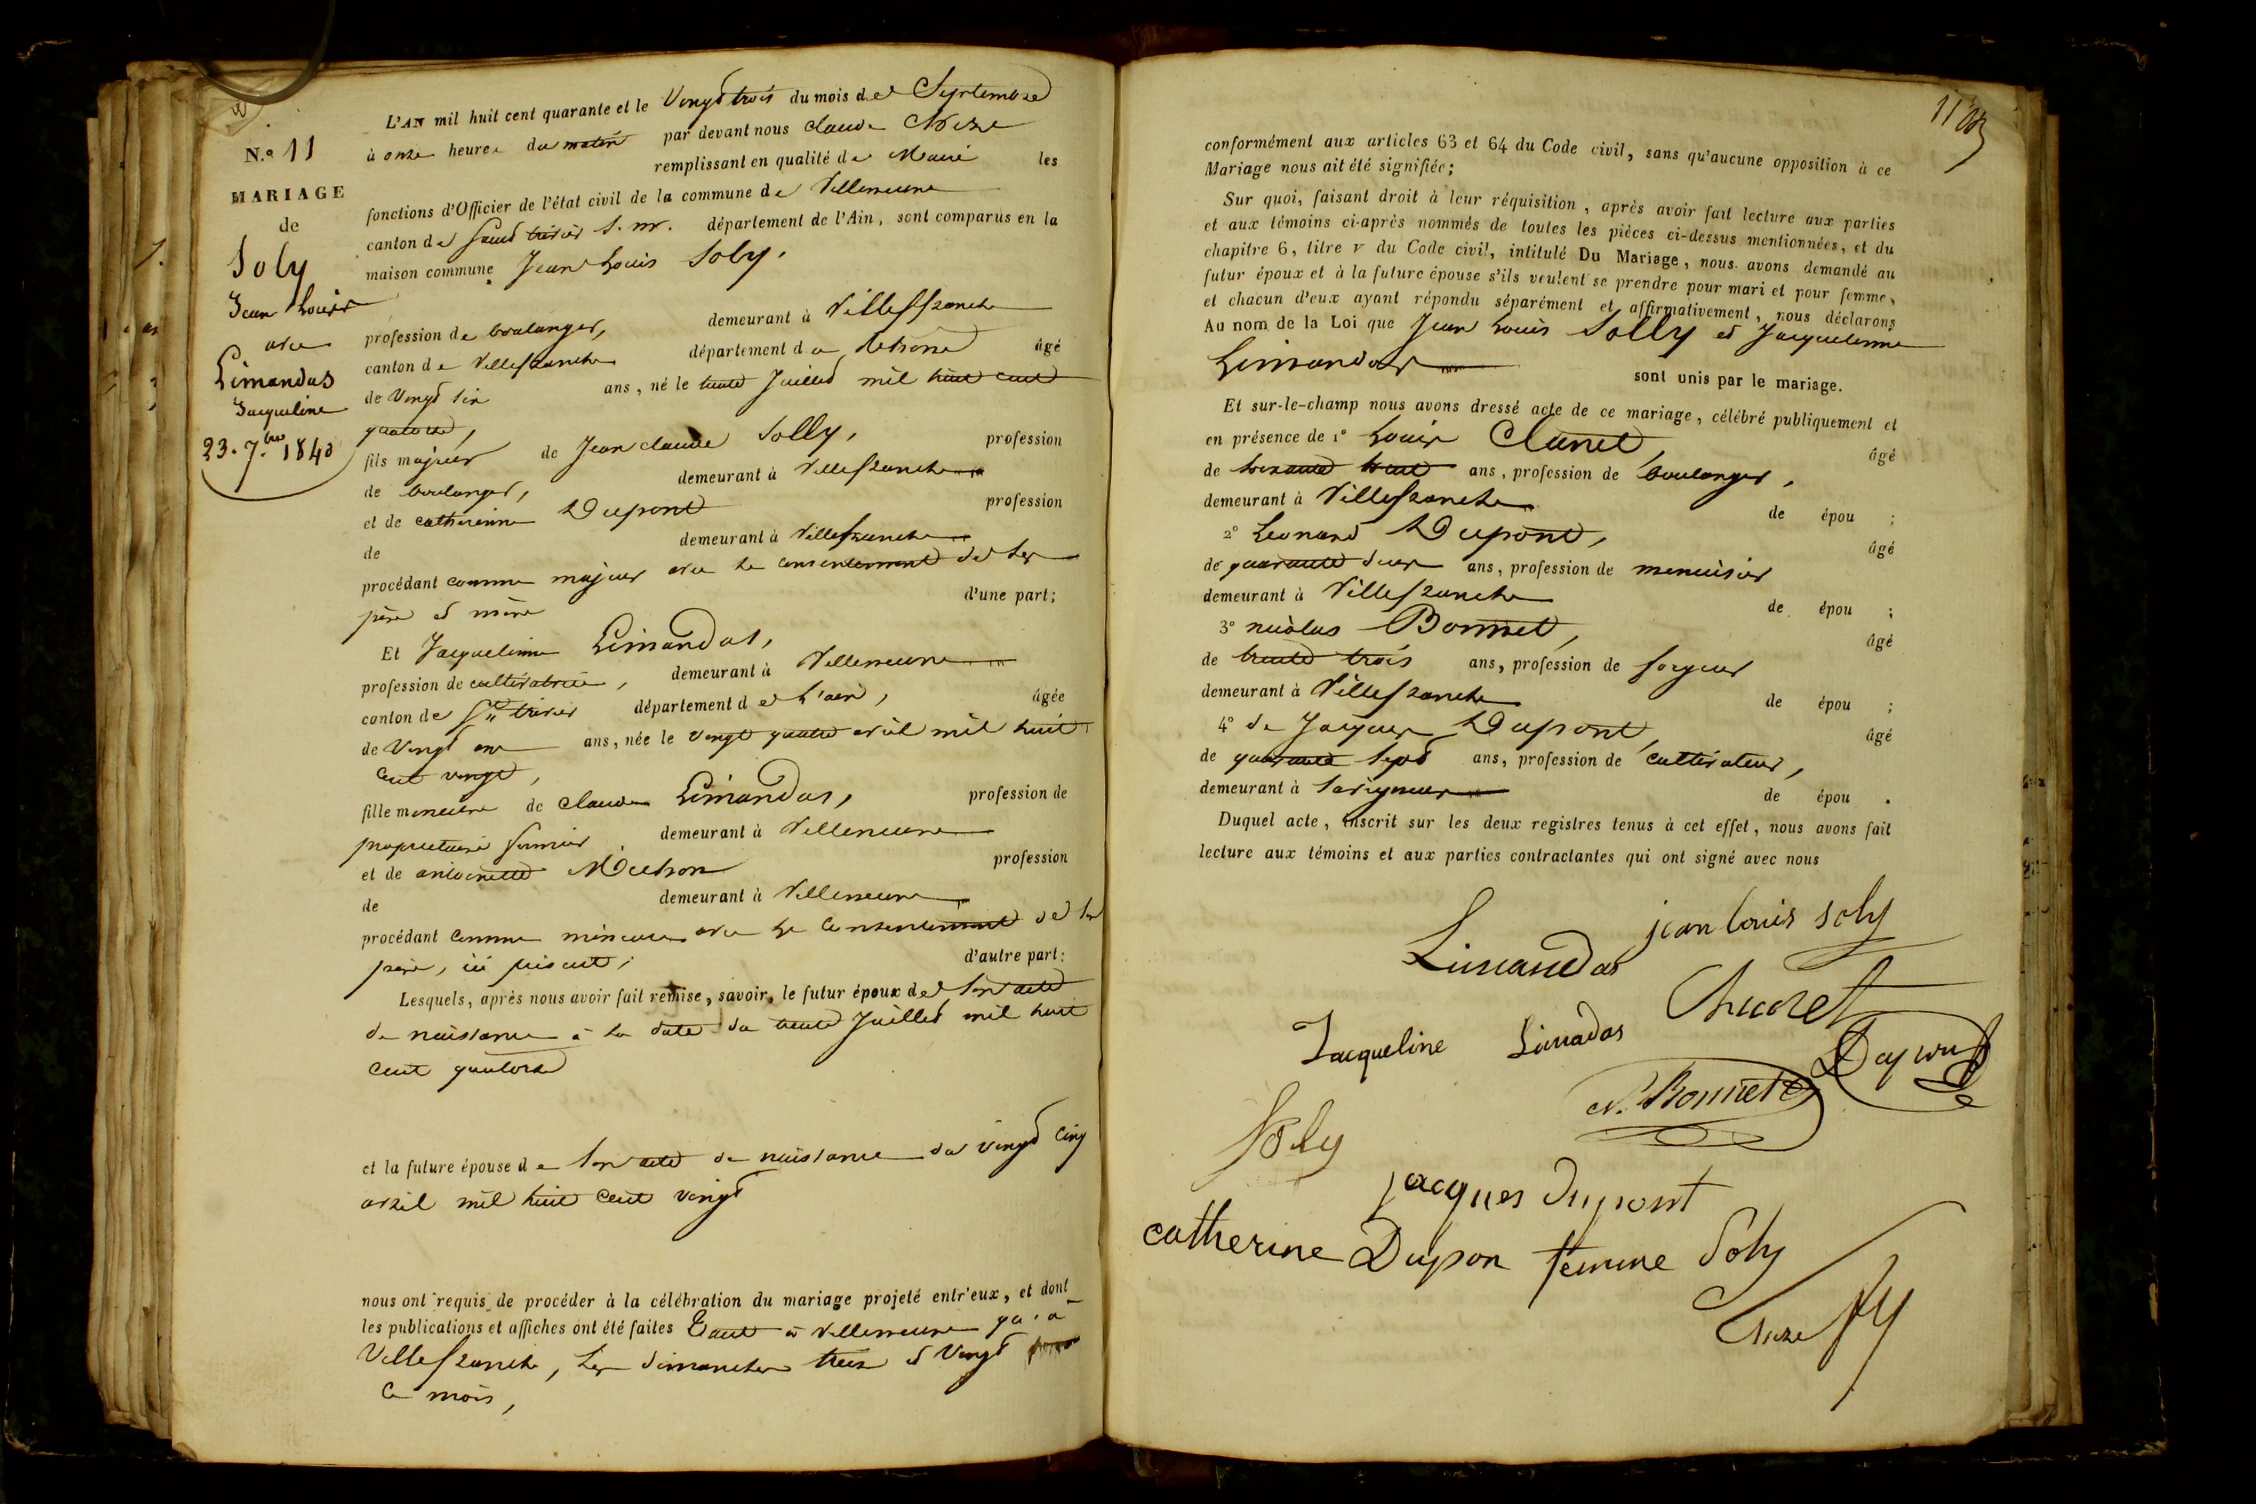 N.º 11
MARIAGE
de
Soly
Jean Louis
avec
Limandas
Jacqueline
23. 7.bre 1840
L'AN mil huit cent quarante et le Vingt trois du mois de Septembre
à onze heures du matin par devant nous Claude
remplissant en qualité de Maire les
fonctions d'Officier de l'état civil de la commune de Villeneuve
canton de Saint trivier s. m. département de l'Ain, sont comparus en la
maison commune Jean Louis Soly,
profession de boulanger, demeurant à Villefranche
canton de Villefranche département du rhône âgé
de Vingt six ans, né le trente Juillet mil huit cent
quatorze,
fils majeur de Jean claude Solly, profession
de boulanger, demeurant à Villefranche
et de catherinne Dupont profession
de demeurant à Villefranche
procédant comme majeur avec le consentement de ses
père et mère d'une part;
Et Jacquelinne Limandas,
profession de cultivatrice, demeurant à Villeneuve
canton de St trivier département de l'ain, âgée
de Vingt ans, née le vingt quatre avril mil huit
cent vingt,
fille mineure de claude Limandas, profession de
propriétaire fermier demeurant à Villeneuve
et de antoinette profession
de demeurant à Villeneuve
procédant comme mineure avec le consentement de son
père, ici présent; d'autre part:
Lesquels, après nous avoir fait remise, savoir, le futur époux de son acte
de naissance à la date du trente Juillet mil huit
cent quatorze
et la future épouse de son acte de naissance du vingt cinq
avril mil huit cent vingt
nous ont requis de procéder à la célébration du mariage projeté entr'eux, et dont
les publications et affiches ont été faites tant à Villeneuve qu'à
Villefranche, les dimanches treize et Vingt
ce mois,
11
conformément aux articles 63 et 64 du Code civil, sans qu'aucune opposition à ce
Mariage nous ait été signifiée;
Sur quoi, faisant droit à leur réquisition, après avoir fait lecture aux parties
et aux témoins ci-après nommés de toutes les pièces ci-dessus mentionnées, et du
chapitre 6, titre v du Code civil, intitulé Du Mariage, nous avons demandé au
futur époux et à la future épouse s'ils veulent se prendre pour mari et pour femme,
et chacun d'eux ayant répondu séparément et affirmativement, nous déclarons
Au nom de la Loi que Jean Louis Solly et Jacquelinne
Limandas sont unis par le mariage.
Et sur-le-champ nous avons dressé acte de ce mariage, célébré publiquement et
en présence de 1º Louis âgé
de ans, profession de boulanger,
demeurant à Villefranche de épou ;
2º Leonard Dupont, âgé
de quarante deux ans, profession de menuisier
demeurant à Villefranche de épou ;
3º nicolas Bonnet, âgé
de trente trois ans, profession de
demeurant à Villefranche de épou ;
4º de Jacques Dupont, âgé
de quarante sept ans, profession de cultivateur,
demeurant à Savigneux de épou .
Duquel acte, inscrit sur les deux registres tenus à cet effet, nous avons fait
lecture aux témoins et aux parties contractantes qui ont signé avec nous
jean louis soly
Limandas
Jacqueline Limadas
Dupont
N. Bonnet
Soly
jacques dupont
catherine Dupon femme Soly